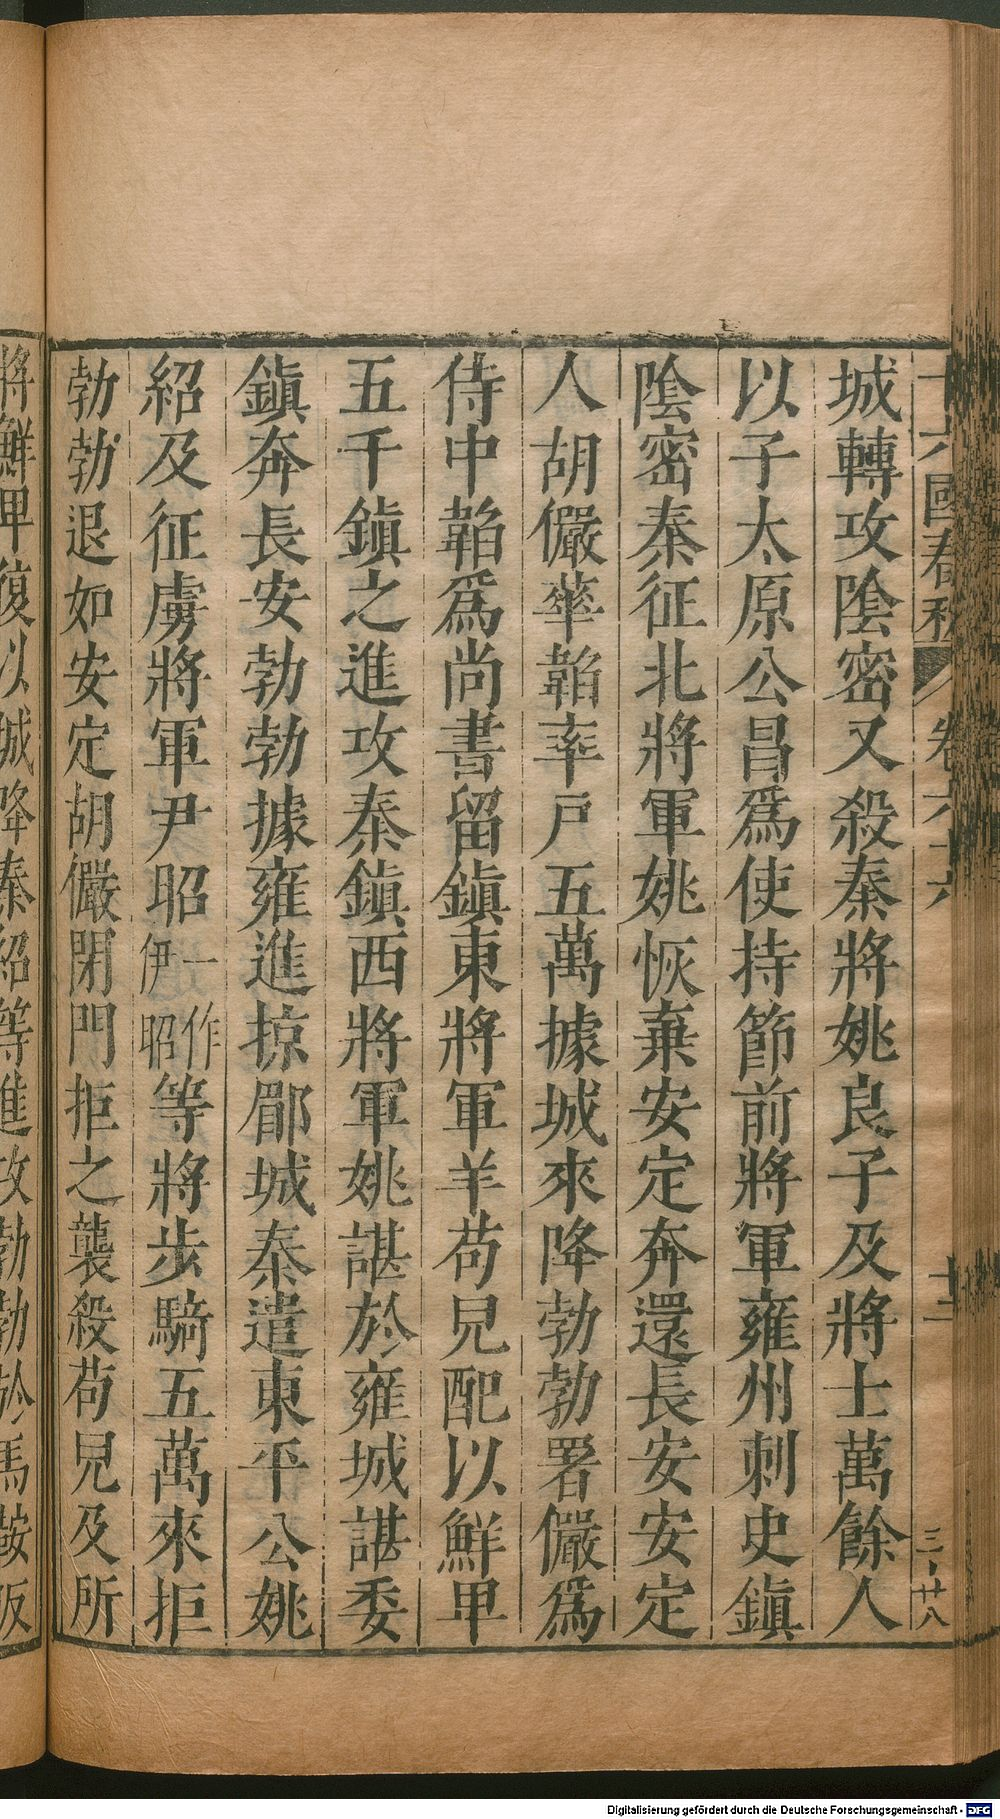 十六國春秋 卷六十六 十二 三、廿八
城轉攻陰密又殺秦將姚良子及將士萬餘人
以子太原公昌爲使持節前將軍雍州刺史鎮
陰密秦征北將軍姚恢棄安定奔還長安安定
人胡儼華韜率戸五萬據城來降勃勃署儼爲
侍中韜爲尚書留鎮東將軍羊苟兒配以鮮卑
五千鎮之進攻秦鎮西將軍姚諶於雍城諶委
鎮奔長安勃勃據雍進掠郿城秦遣東平公姚
紹及征虜將軍尹昭一作伊昭等將步騎五萬來拒
勃勃退如安定胡儼閉門拒之襲殺苟兒及所
將鮮卑復以城降秦紹等進攻勃勃於馬鞍坂
Digitalisierung gefördert durch die Deutsche Forschungsgemeinschaft - DFG